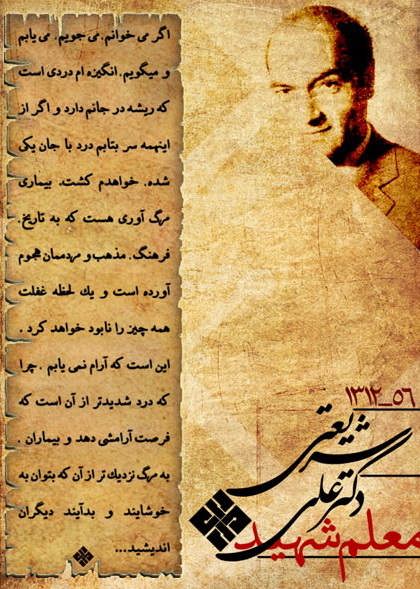 اگر می خوانم. می جویم. می یابم
و میگویم. انگیزه ام دردی است
که ریشه در جانم دارد و اگر از
اینهمه سر بتابم درد با جان یکی
شده. خواهدم کشت. بیماری
مرگ آوری هست که به تاریخ.
فرهنگ. مذهب و مردممان هجوم
آورده است و یك لحظه غفلت
همه چیز را نابود خواهد کرد .
این است که آرام نمی یابم .چرا
که درد شدیدتر از آن است که
فرصت آرامشی دهد و بیماران .
به مرگ نزدیك تر از آن که بتوان به
خوشایند و بدآیند دیگران
اندیشید...
۱۳۱۲_۵۶
دکتر علی شریعتی
معلم شهید